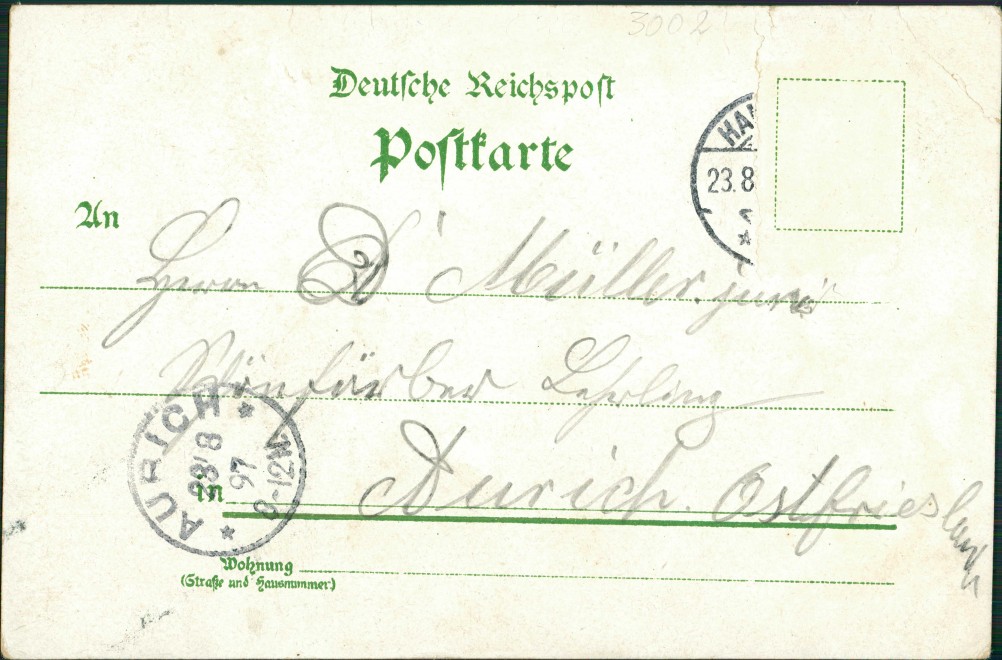 3002
Deutsche Reichspost
Postkarte
HA
23.8
An
Herrn D. Müller. junr
Schönfärber Lehrling
in Aurich. Ostfriesland
AURICH
23/8
97
8-12N
Wohnung
(Straße und Hausnummer)